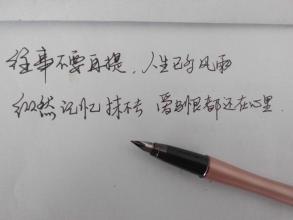 往事不要再提,人生已多风雨
纵然记忆抹不去 爱与恨都还在心里.